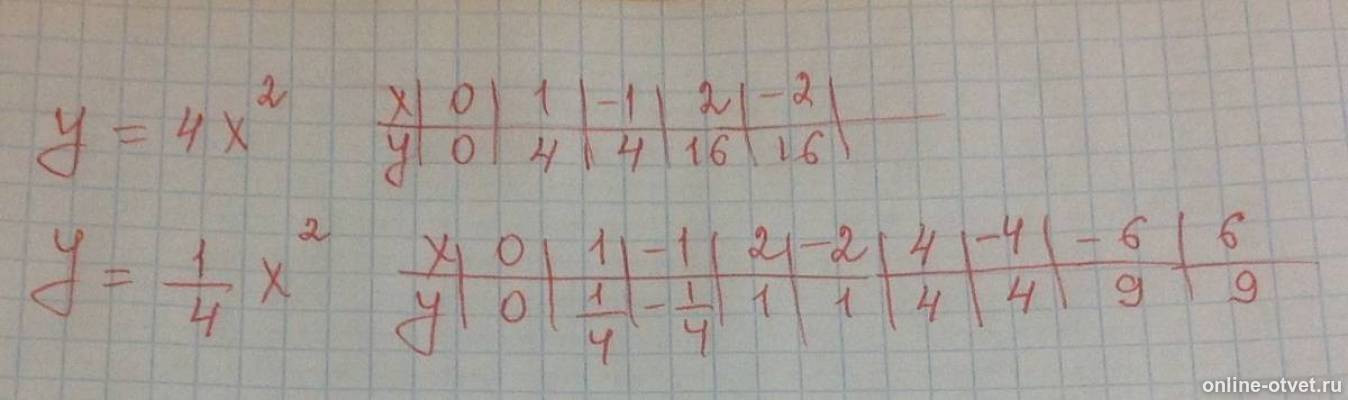 y = 4x² x | 0 | 1 | -1 | 2 | -2 |
y | 0 | 4 | 4 | 16 | 16 |
y = 1/4 x² x | 0 | 1 | -1 | 2 | -2 | 4 | -4 | -6 | 6
y | 0 | 1/4 | -1/4 | 1 | 1 | 4 | 4 | 9 | 9
online-otvet.ru